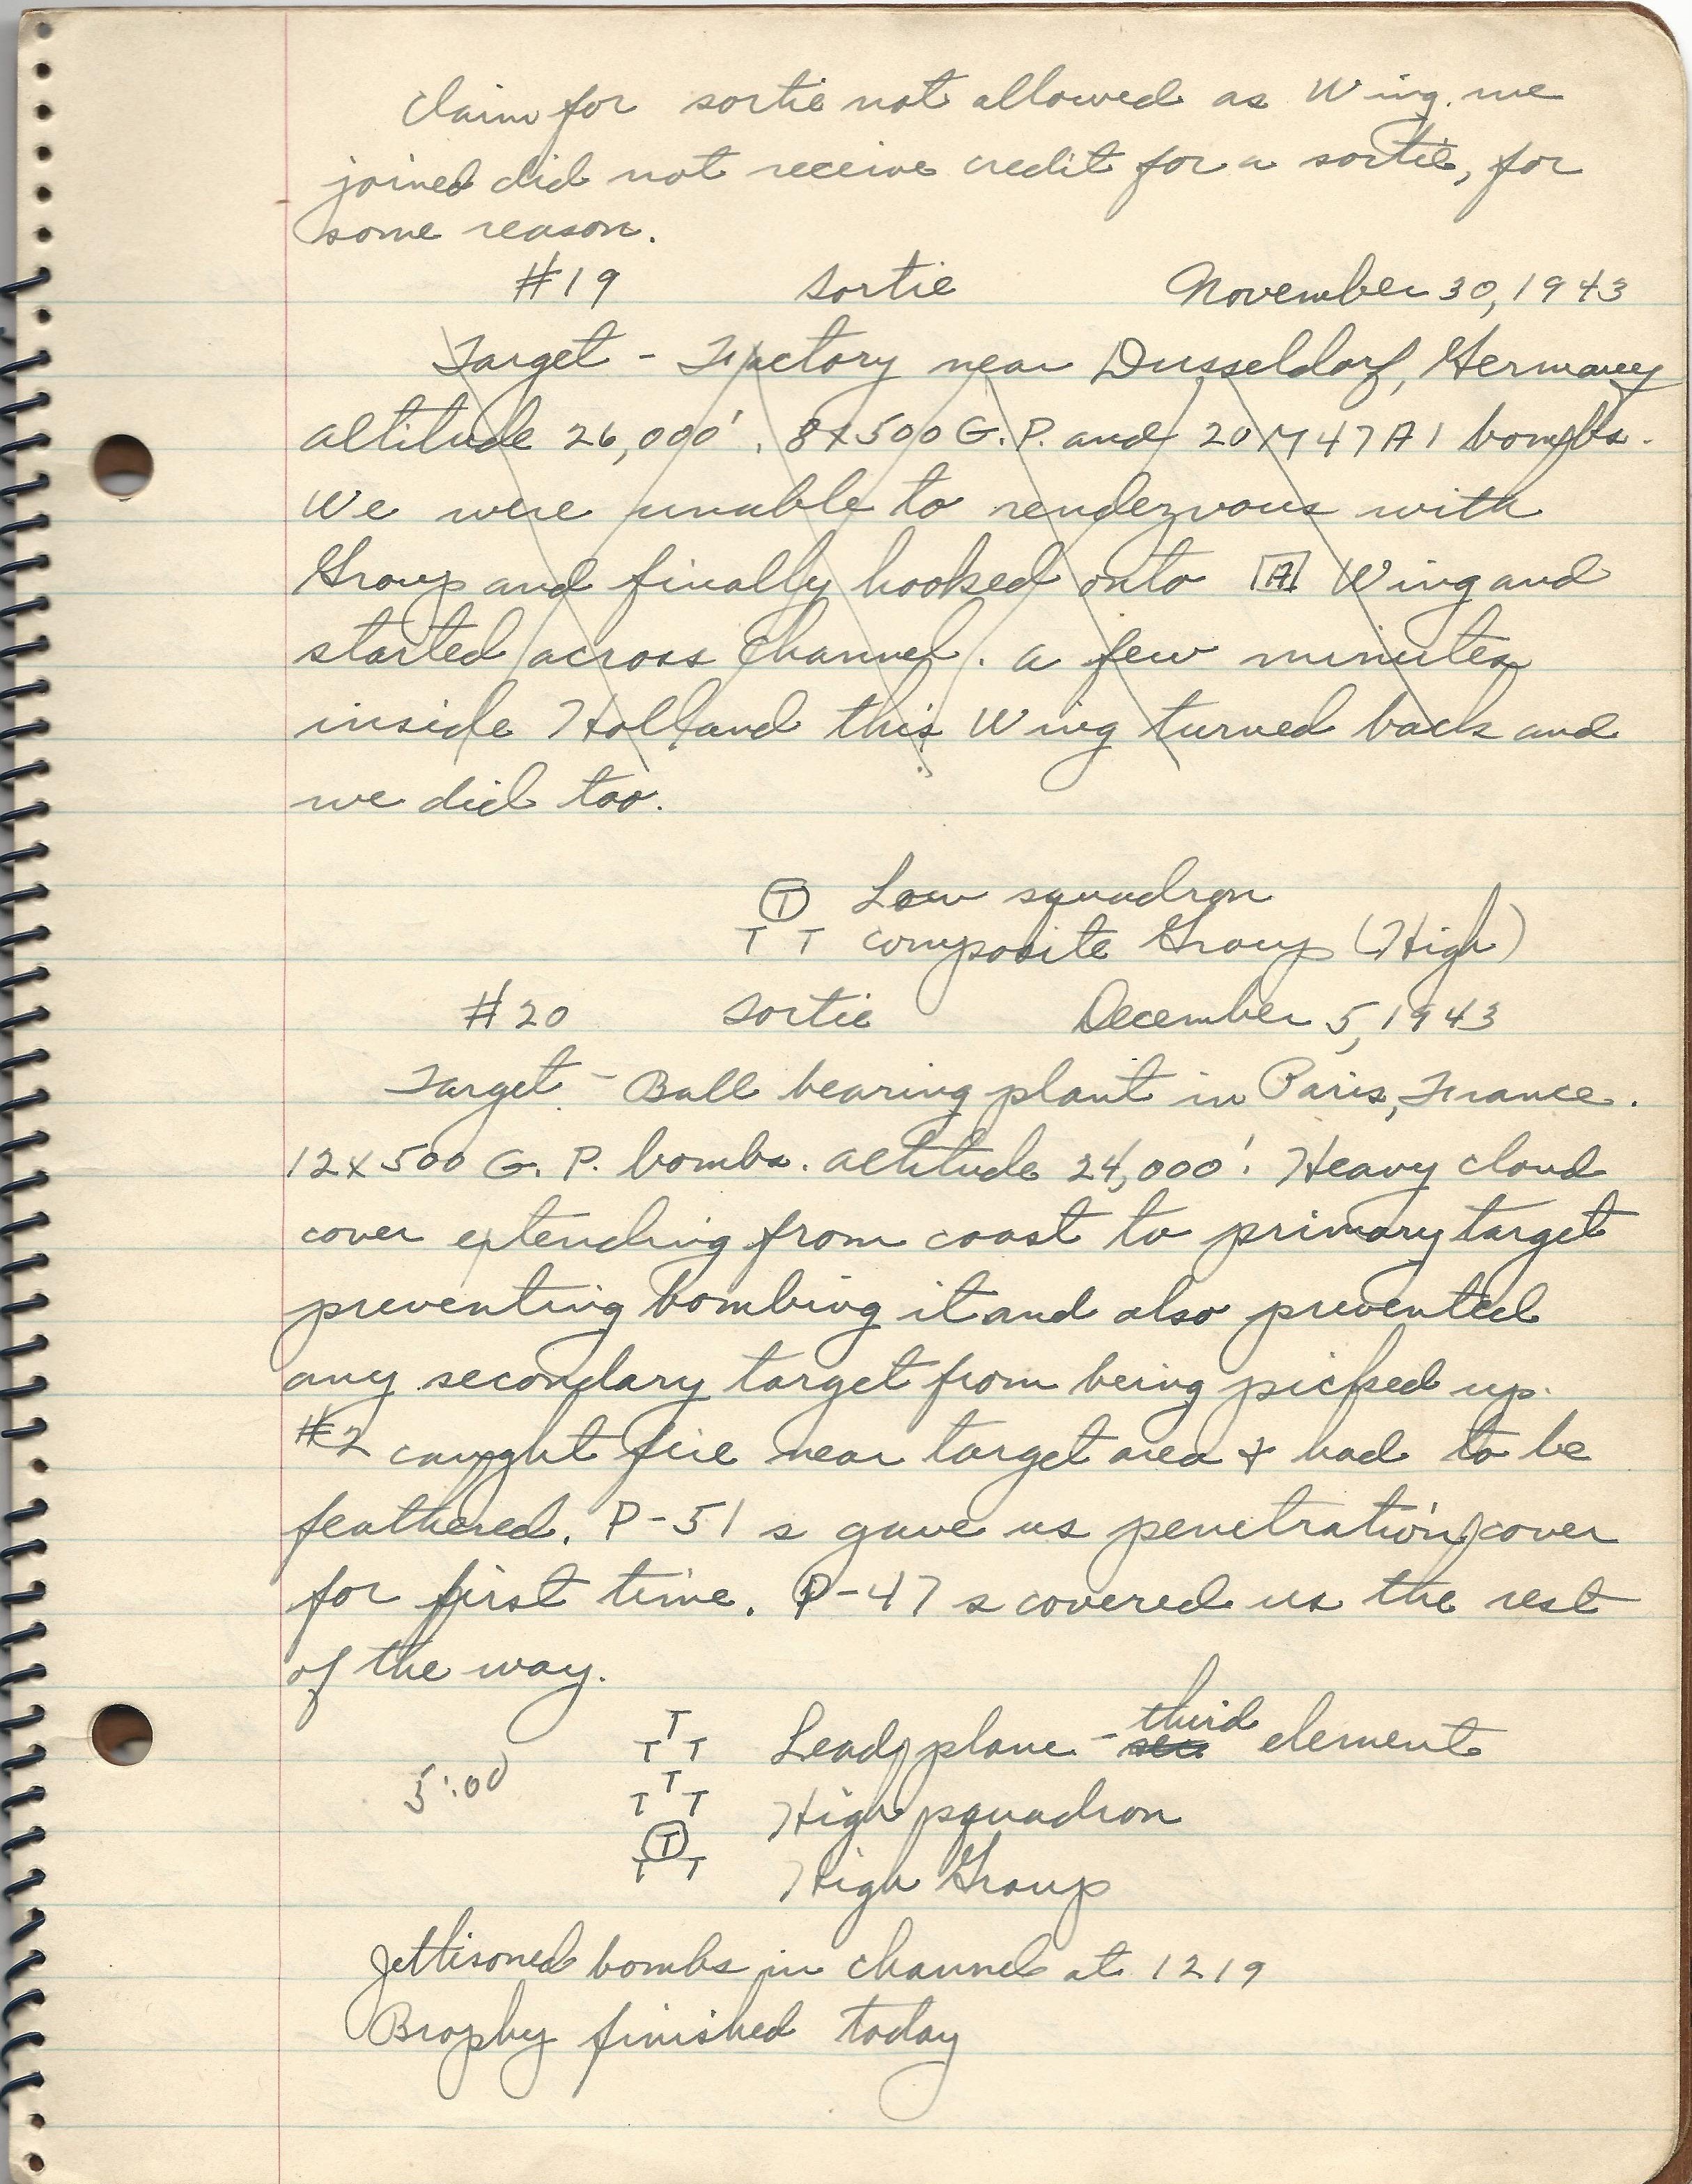 Claim for sortie not allowed as Wing we
joined did not receive credit for a sortie, for
some reason.
#19 Sortie November 30, 1943
Target - Factory near Dusseldorf, Germany
altitude 26,000'. 8x500 G.P. and 20 M47A1 bombs.
We were unable to rendezvous with
Group and finally hooked onto A Wing and
started across Channel. a few minutes
inside Holland this Wing turned back and
we did too.
T Low squadron
T T composite Group (High)
#20 Sortie December 5, 1943
Target - Ball bearing plant in Paris, France.
12x500 G. P. bombs. altitude 24,000'. Heavy cloud
cover extending from coast to primary target
preventing bombing it and also prevented
any secondary target from being picked up.
#2 caught fire near target area + had to be
feathered. P-51 s gave us penetration cover
for first time. P-47 s covered us the rest
of the way.
T
T T Lead plane - third element
5:00
T
T T High squadron
T
T T High Group
Jettisoned bombs in channel at 1219
Brophy finished today